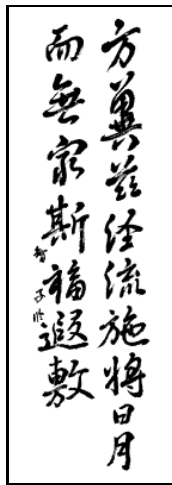 方冀茲経流施將日月
而無窮斯福遐敷